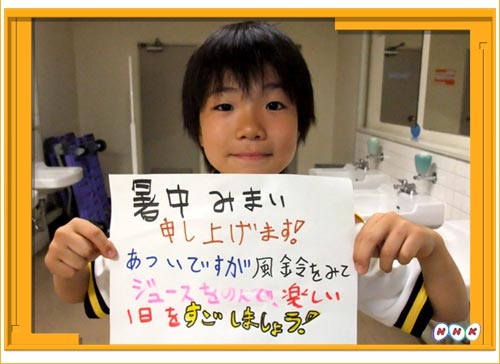 暑中みまい
申し上げます!
あついですが風鈴をみて
ジュースをのんで、楽しい
1日をすごしましょう!
NHK